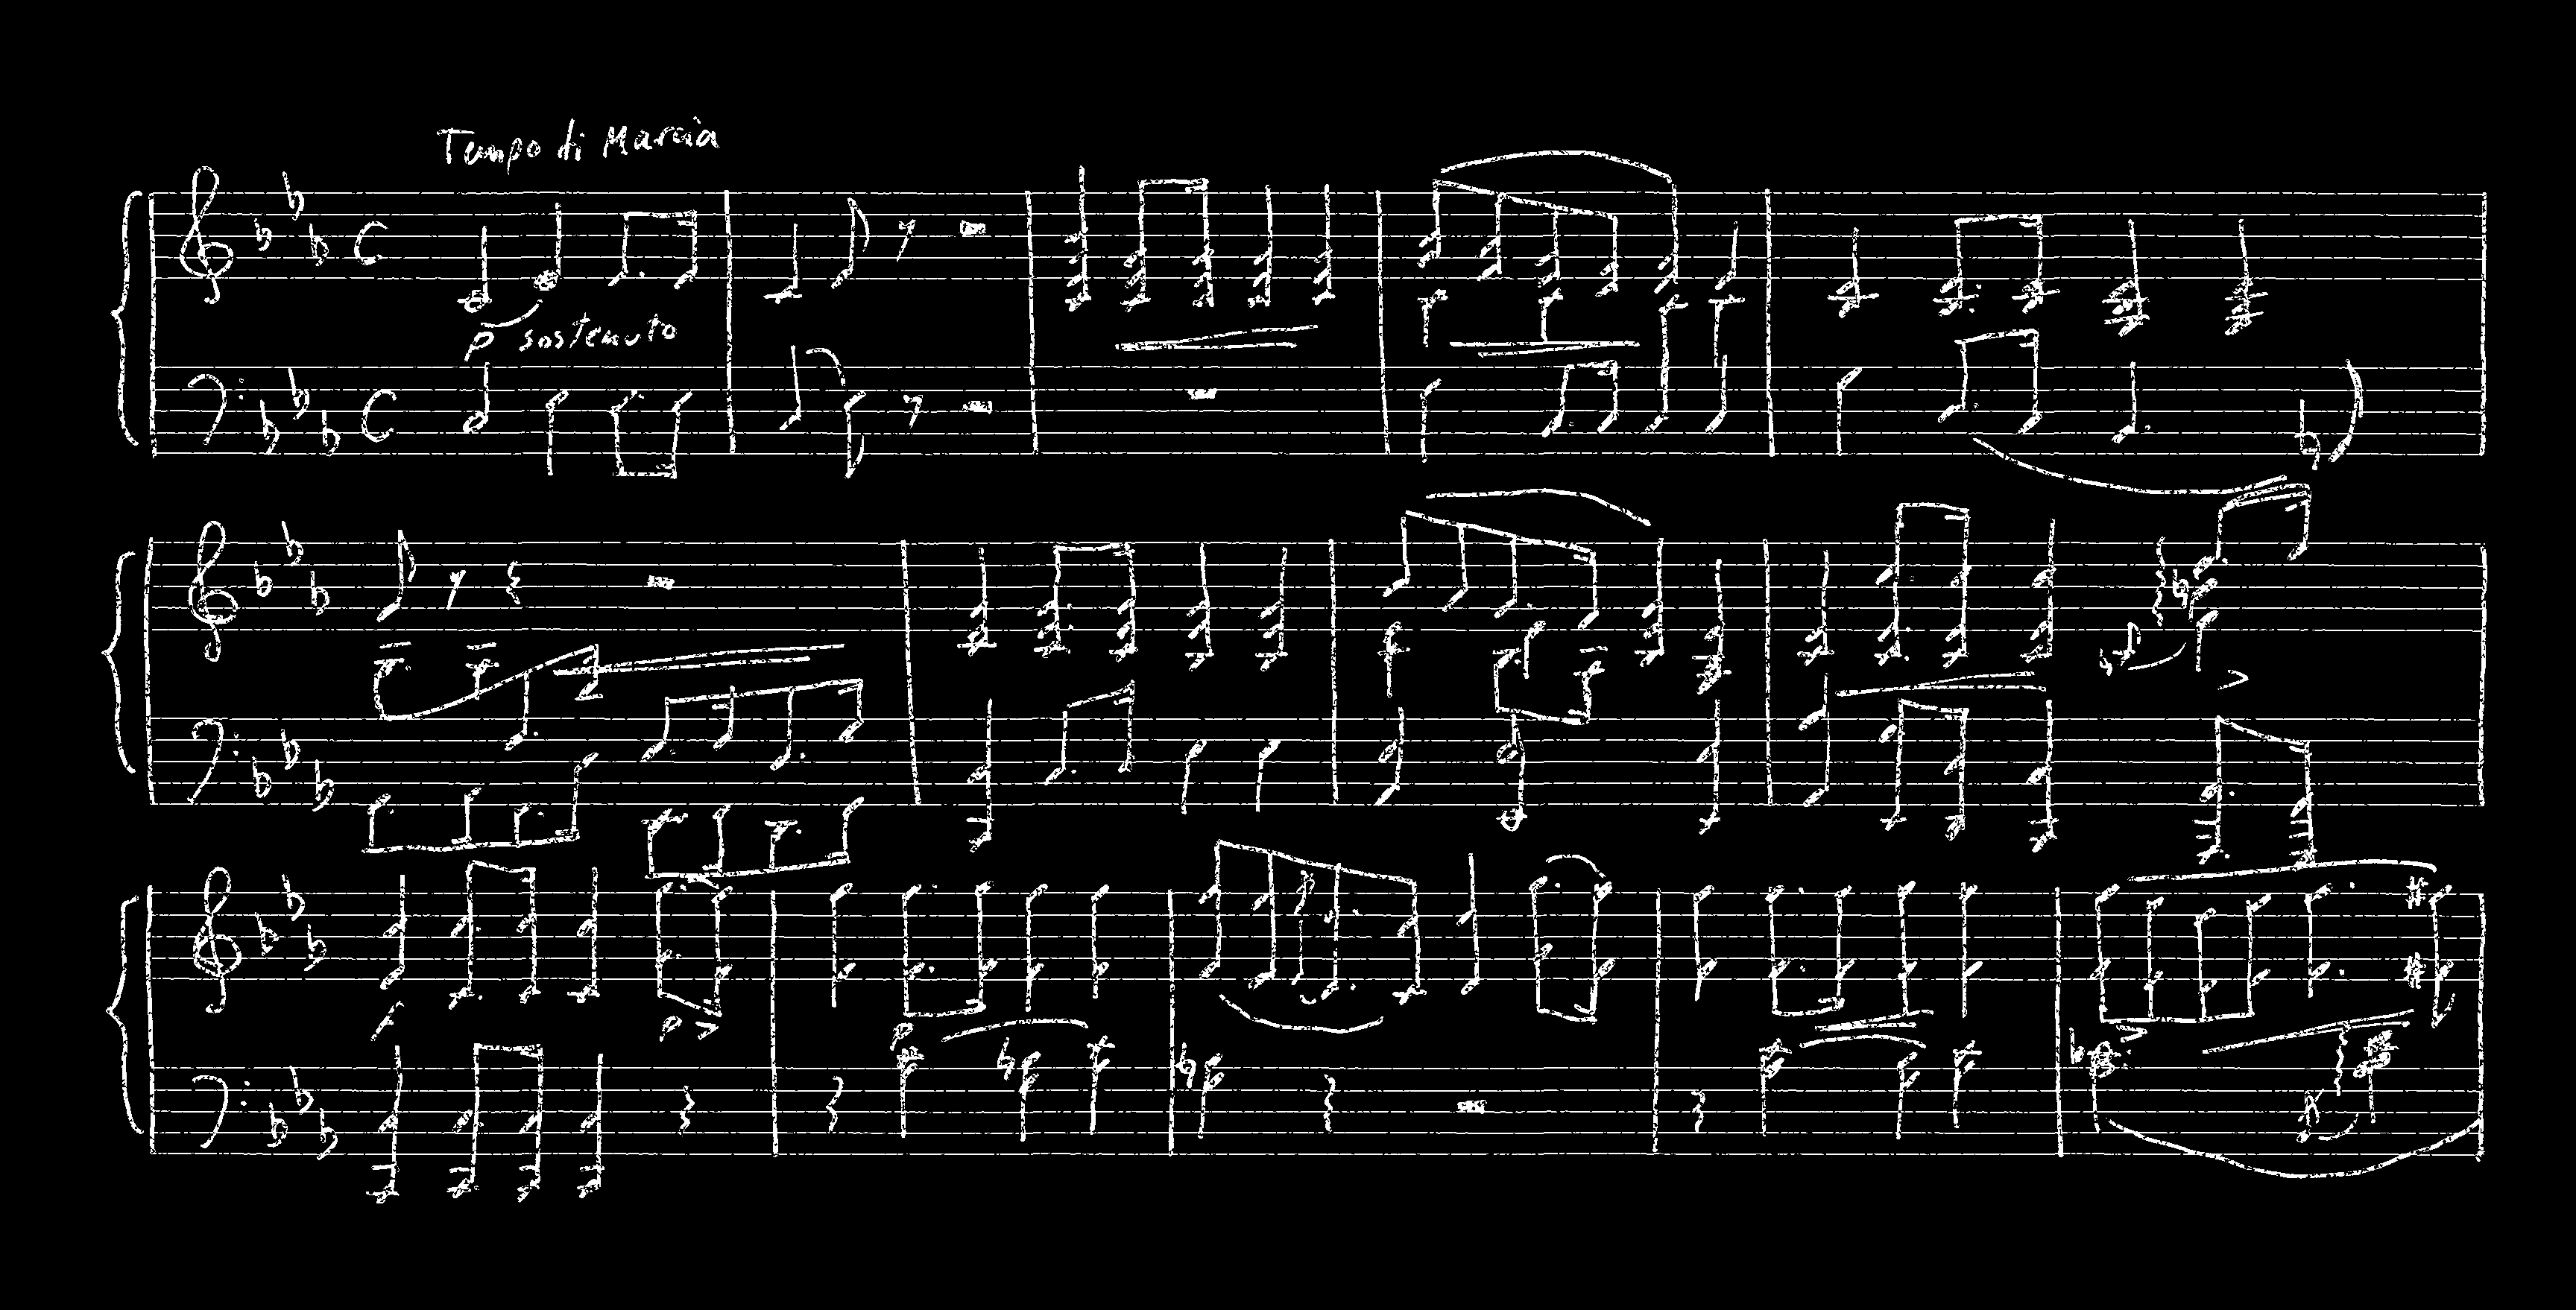 Tempo di Marcia
p sostenuto
f
p
p